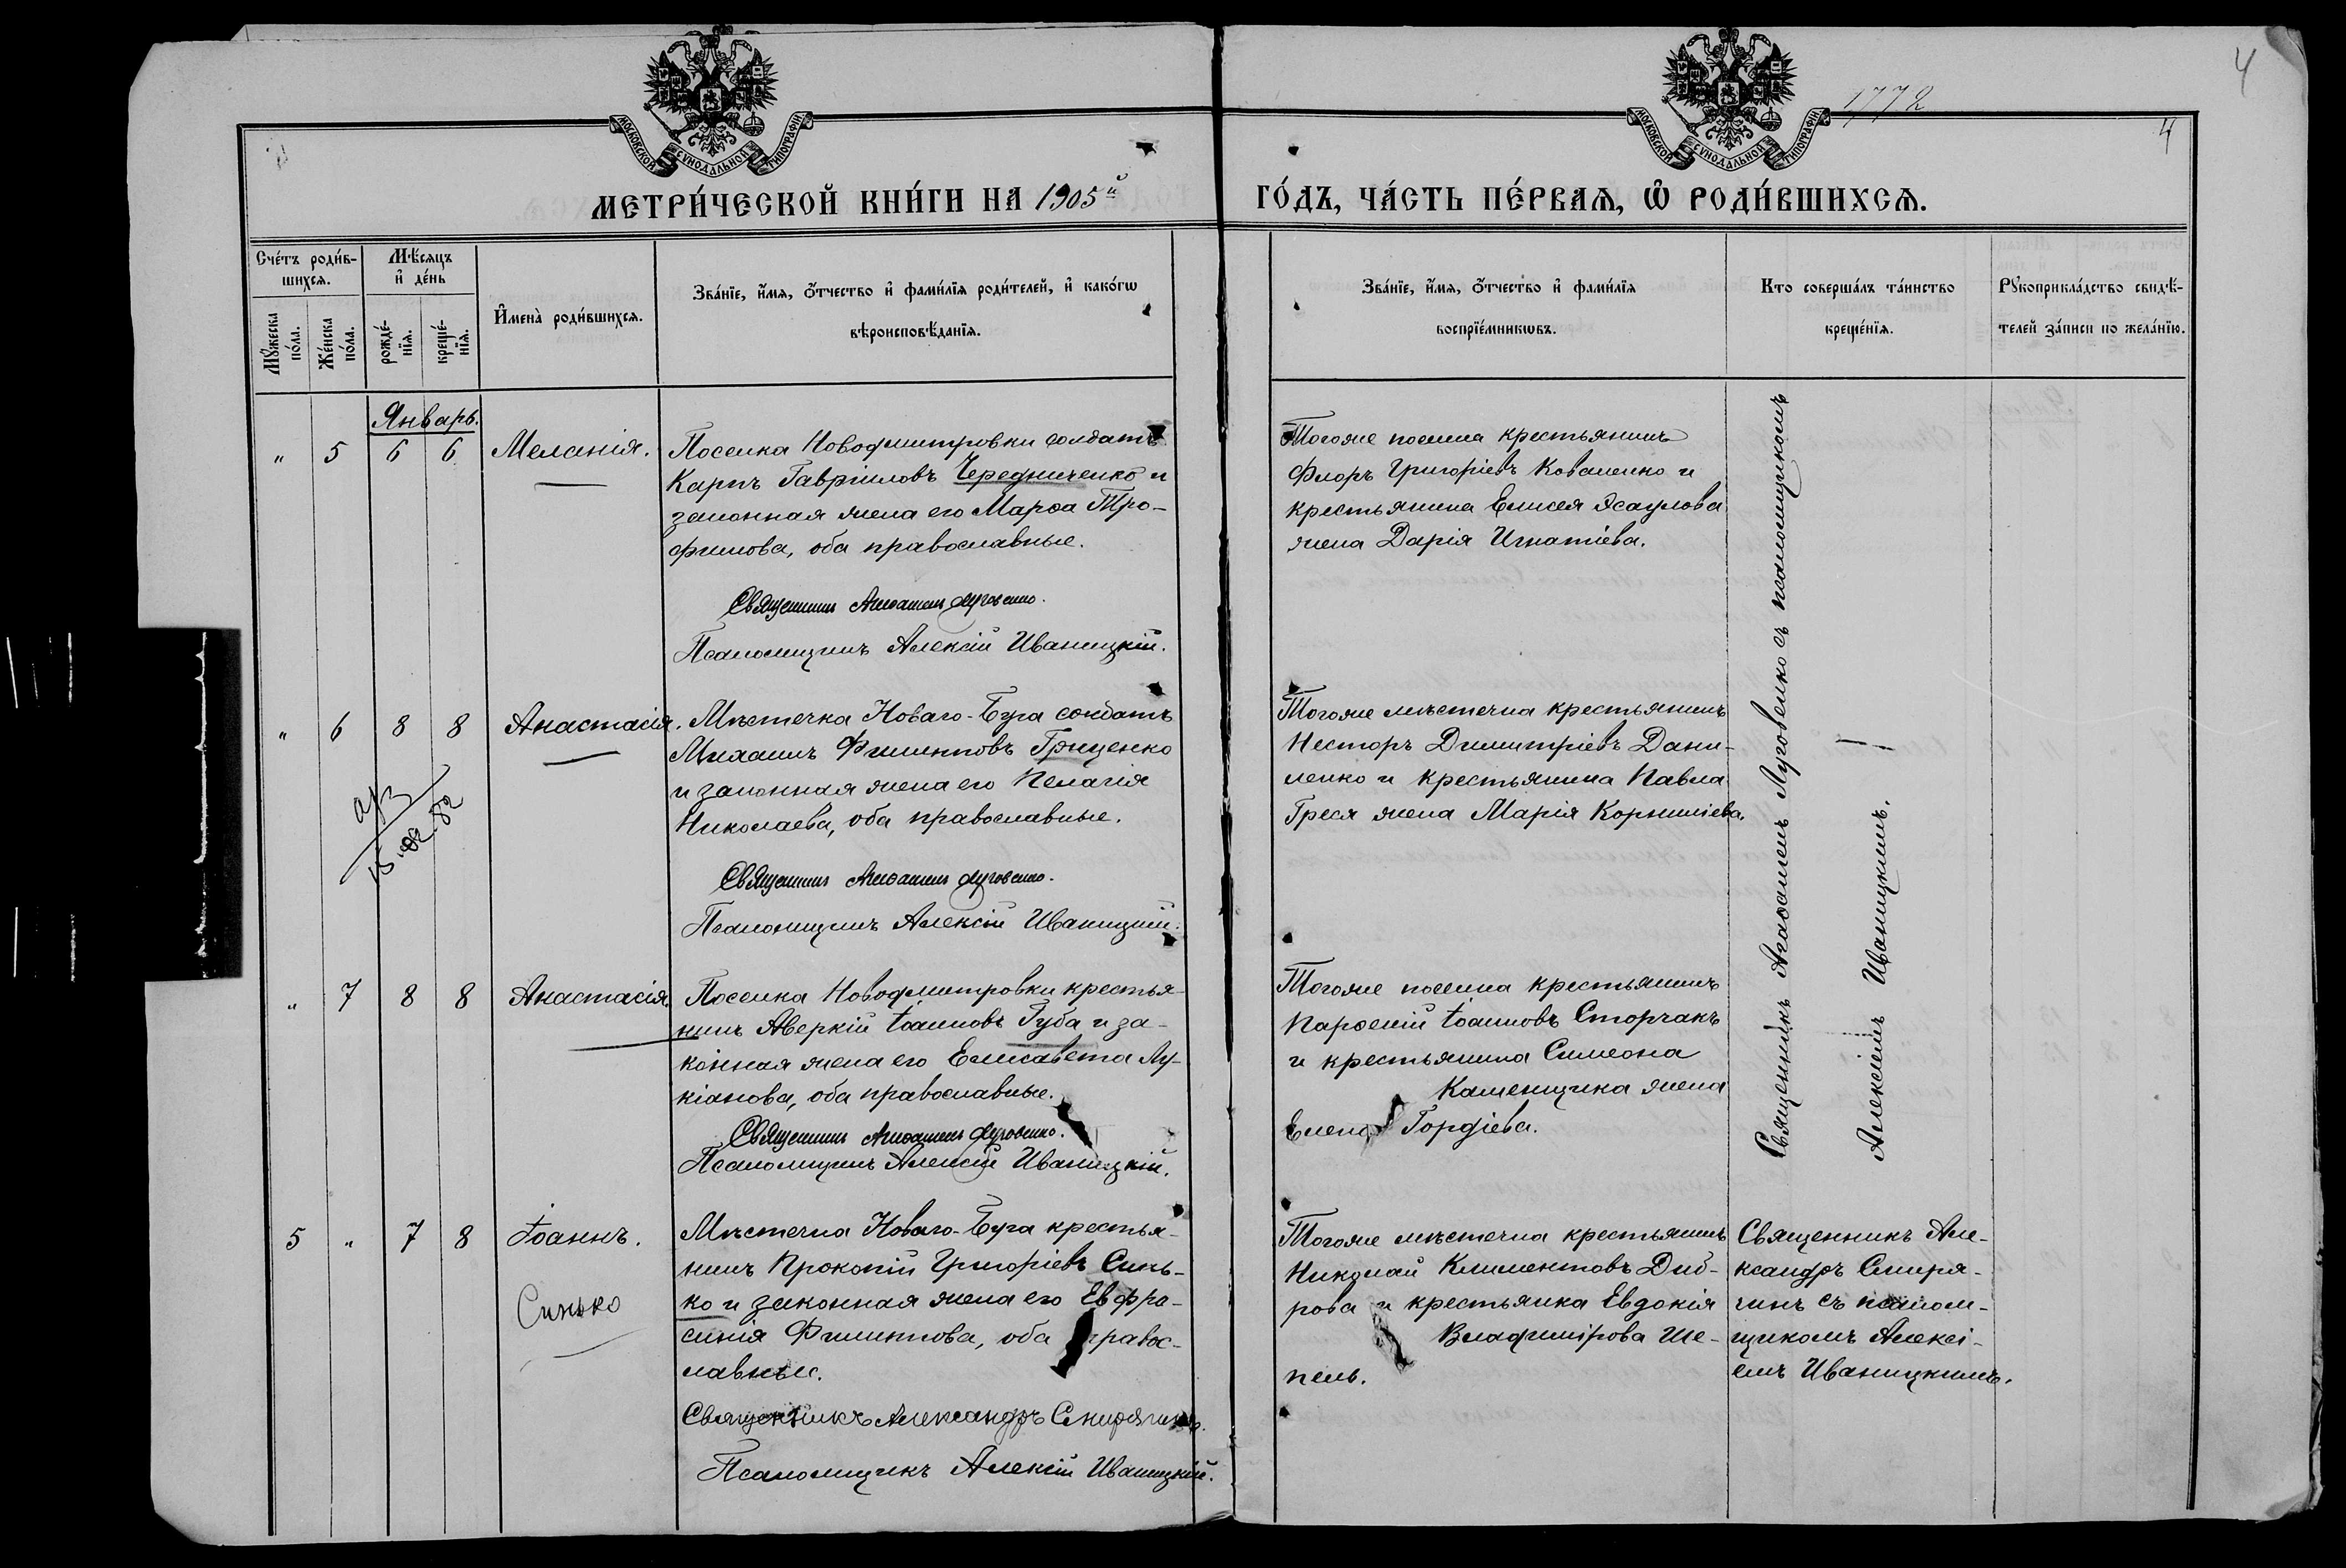 4
1772
4
МОСКОВСКОЙ СѴНОДАЛЬНОЙ ТИПОГРАФІИ
МОСКОВСКОЙ СѴНОДАЛЬНОЙ ТИПОГРАФІИ
МЕТРИ́ЧЕСКОЙ КНИ́ГИ НА 1905й
ГО́ДЪ, ЧА́СТЬ ПЕ́РВАѦ, Ѽ РОДИ́ВШИХСѦ.
Сче́тъ роди́в-
шихсѧ.
Мꙋ́жеска по́ла.
Же́нска по́ла.
Мѣ́сѧцъ и҆ де́нь
рожде́-нїѧ.
креще́-нїѧ.
И҆мена̀ роди́вшихсѧ.
Зва́нїе, и҆́мѧ, ѻ҆́тчество и҆ фами́лїѧ роди́телей, и҆ како́гѡ
вѣроисповѣ́данїѧ.
Зва́нїе, и҆́мѧ, ѻ҆́тчество и҆ фами́лїѧ
воспрїе́мникѡвъ.
Кто соверша́лъ та́инство
креще́нїѧ.
Рꙋкоприкла́дство свидѣ́-
телей за́писи по жела́нїю.
Январь.
" 5 6 6 Меланія.
Поселка Новодмитровки солдатъ
Карпъ Гавріиловъ Чередниченко и
законная жена его Марѳа Тро-
фимова, оба православные.
Священникъ Агаѳангелъ Луговенко.
Псаломщикъ Алексій Иваницкій.
Тогоже поселка крестьянинъ
Флоръ Григоріевъ Коваленко и
крестьянина Елисея Ясаулова
жена Дарія Игнатіева.
" 6 8 8 Анастасія.
15.02.82
Мѣстечка Новаго-Буга солдатъ
Михаилъ Филиповъ Гриценко
и законная жена его Пелагія
Николаева, оба православные.
Священникъ Агаѳангелъ Луговенко.
Псаломщикъ Алексій Иваницкій.
Тогоже мѣстечка крестьянинъ
Несторъ Димитріевъ Дани-
ленко и крестьянина Павла
Греся жена Марія Корниліева.
" 7 8 8 Анастасія.
Поселка Новодмитровки крестья-
нинъ Аверкій Іоанновъ Губа и за-
конная жена его Елисавета Лу-
кіанова, оба православные.
Священникъ Агаѳангелъ Луговенко.
Псаломщикъ Алексій Иваницкій.
Тогоже поселка крестьянинъ
Парѳеній Іоанновъ Сторчакъ
и крестьянина Симеона
Каменщика жена
Елена Гордіева.
Священникъ Агаѳангелъ Луговенко съ псаломщикомъ
Алексіемъ Иваницкимъ.
5 " 7 8 Іоаннъ.
Синько
Мѣстечка Новаго-Буга крестья-
нинъ Прокопій Григоріевъ Синь-
ко и законная жена его Евфро-
синія Филиппова, оба правос-
лавные.
Священникъ Александръ Смирягинъ.
Псаломщикъ Алексій Иваницкій.
Тогоже мѣстечка крестьянинъ
Николай Климентовъ Диб-
рова и крестьянка Евдокія
Владимірова Ше-
пель.
Священникъ Але-
ксандръ Смиря-
гинъ съ псалом-
щикомъ Алексі-
емъ Иваницкимъ.